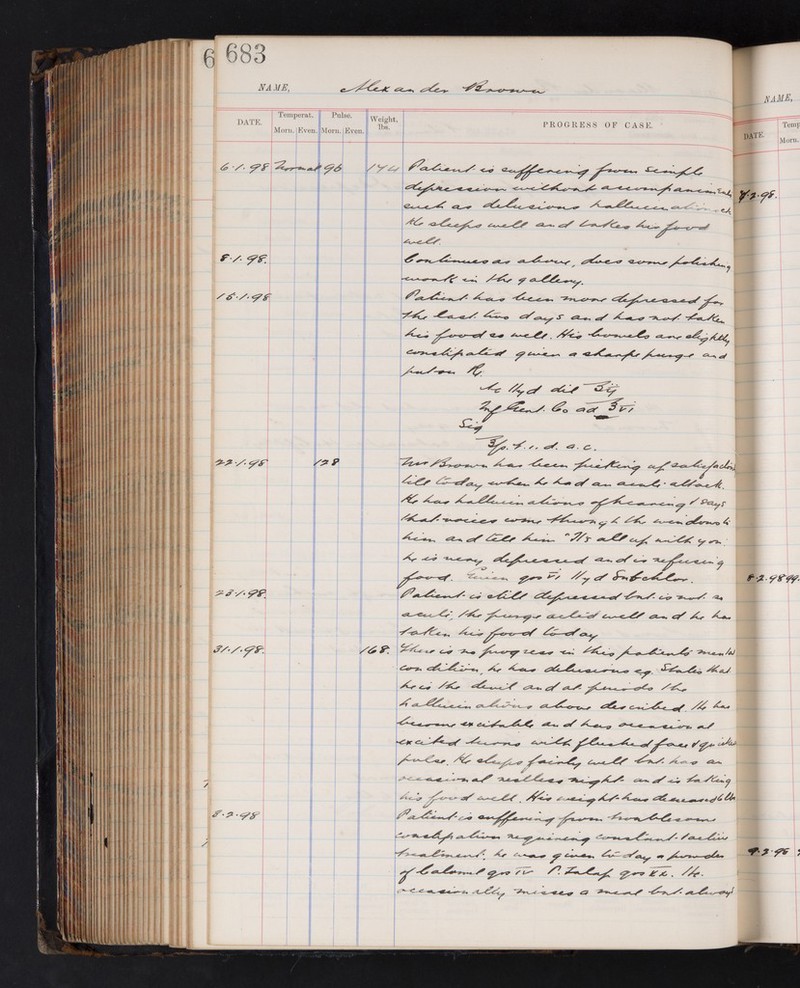 6 683
NAME, Alexander Brown
DATE. Temperat. Pulse. Weight, lbs. PROGRESS OF CASE.
Morn. Even. Morn. Even.
6.1.98 Normal 96 Patient is suffering from simple
depression without accompaniments
such as delusions hallucinations etc
He sleeps well and takes his food
well.
8.1.98. Continues as above, does some polishing
work in the gallery.
15.1.98 Patient has been more depressed for
the last two days and has not taken
his food so well. His bowels are slightly
constipated given a sharp purge and
put on ℞.
Ac Hyd dil ʒij
Inf Gent. Co ad ℥vi
Sig
℥ss. t. i. d. a. c.
22.1.98 128 Mr Brown has been picking up satisfactorily
till today when he had an acute attack.
He has hallucinations of hearing & says
that voices come through the windows to
him and tell him "It's all up with you"
he is very depressed and is refusing
food. Given grs vi Hyd Subchlor.
23.1.98. Patient is still depressed but is not so
acute, the purge acted well and he has
taken his food today
31.1.98. 168. There is no progress in this patients mental
condition, he has delusions eg. States that
he is the devil and at periods the
hallucinations above described. He has
become excitable and has occasional
excited turns with flushed face & quick
pulse. He sleeps fairly well but has an
occasional restless night and is taking
his food well. His weight has decreased 6 lbs
3.2.98 Patient is suffering from troublesome
constipation requiring constant active
treatment. he was given to-day a powder
of Calomel grs iv P. Jalap grs xx. He
occasionally misses a meal but always
NAME,
DATE. Temp
Morn.
8.2.98 99.
9.2.98